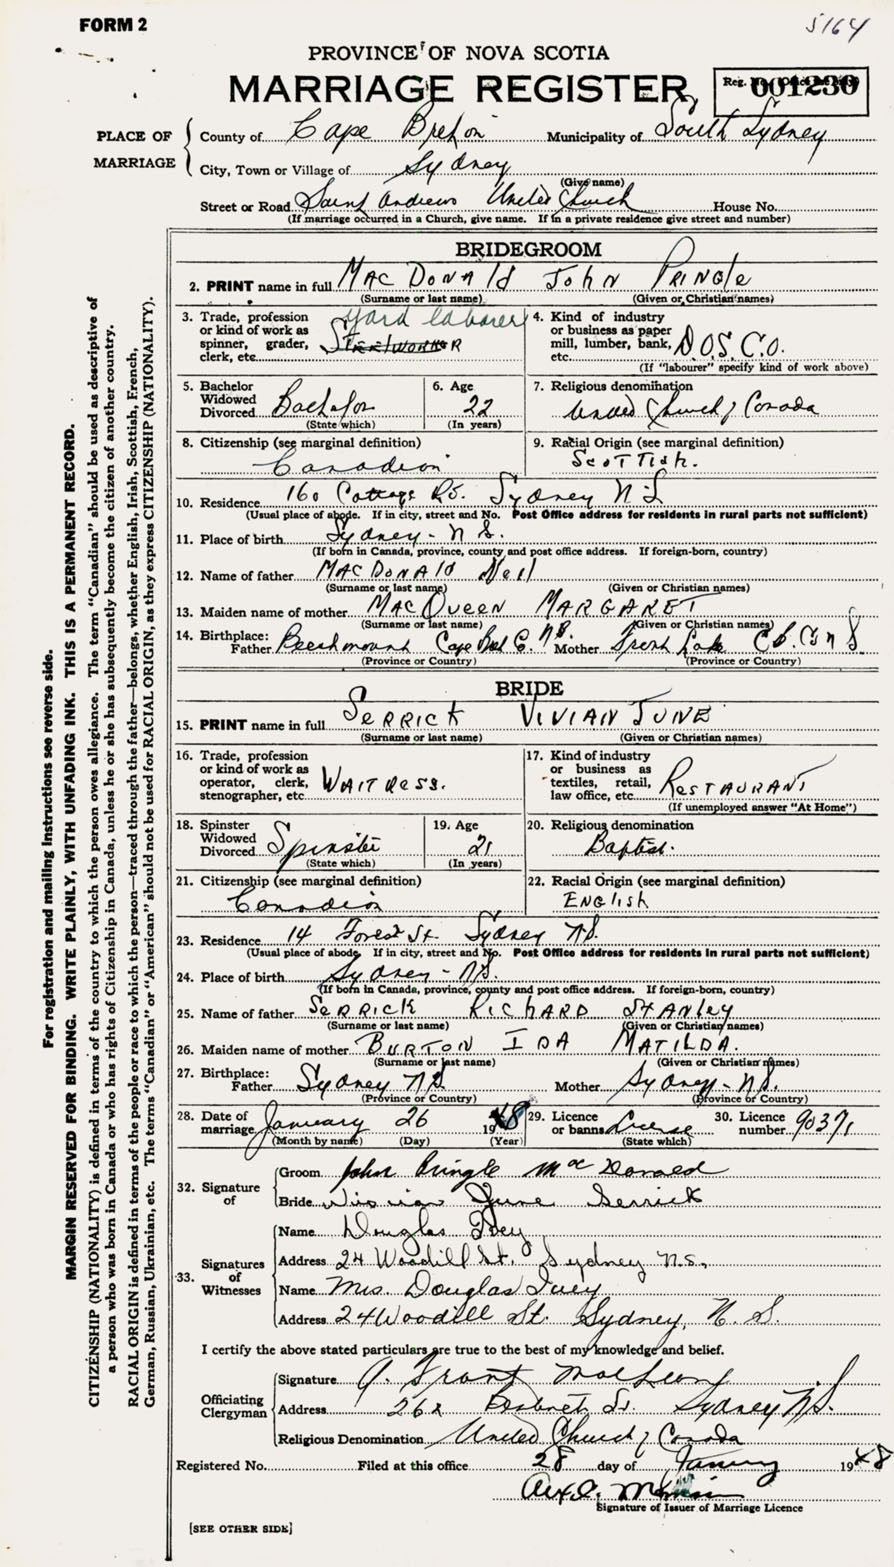 FORM 2
5164
PROVINCE OF NOVA SCOTIA
MARRIAGE REGISTER
001230
PLACE OF MARRIAGE
County of Cape Breton Municipality of South Sydney
City, Town or Village of Sydney
(Give name)
Street or Road Saint Andrews United Church House No.
(If marriage occurred in a Church, give name. If in a private residence give street and number)
BRIDEGROOM
2. PRINT name in full MacDonald John Pringle
(Surname or last name) (Given or Christian names)
3. Trade, profession or kind of work as spinner, grader, clerk, etc. yard laborer
4. Kind of industry or business as paper mill, lumber, bank, etc. D.O.S.C.O.
(If "labourer" specify kind of work above)
5. Bachelor Widowed Divorced Bachelor
(State which)
6. Age 22
(In years)
7. Religious denomination United Church of Canada
8. Citizenship (see marginal definition) Canadian
9. Racial Origin (see marginal definition) Scottish.
10. Residence 160 Cottage Rd. Sydney N S
(Usual place of abode. If in city, street and No. Post Office address for residents in rural parts not sufficient)
11. Place of birth Sydney - N S.
(If born in Canada, province, county and post office address. If foreign-born, country)
12. Name of father MacDonald Neil
(Surname or last name) (Given or Christian names)
13. Maiden name of mother MacQueen Margaret
(Surname or last name) (Given or Christian names)
14. Birthplace: Father Beechmount Cape Bret Mother Lake C.B. Co N S
(Province or Country) (Province or Country)
BRIDE
15. PRINT name in full Serrick Vivian June
(Surname or last name) (Given or Christian names)
16. Trade, profession or kind of work as operator, clerk, stenographer, etc. Waitress.
17. Kind of industry or business as textiles, retail, law office, etc. Restaurant
(If unemployed answer "At Home")
18. Spinster Widowed Divorced Spinster
(State which)
19. Age 21
(In years)
20. Religious denomination Baptist.
21. Citizenship (see marginal definition) Canadian
22. Racial Origin (see marginal definition) English
23. Residence 14 Forest St. Sydney N.S.
(Usual place of abode. If in city, street and No. Post Office address for residents in rural parts not sufficient)
24. Place of birth Sydney - N.S.
(If born in Canada, province, county and post office address. If foreign-born, country)
25. Name of father Serrick Richard Stanley
(Surname or last name) (Given or Christian names)
26. Maiden name of mother Burton Ida Matilda.
(Surname or last name) (Given or Christian names)
27. Birthplace: Father Sydney N.S. Mother Sydney - N.S.
(Province or Country) (Province or Country)
28. Date of marriage January 26 1948
(Month by name) (Day) (Year)
29. Licence or banns License
(State which)
30. Licence number 90371
32. Signature of
Groom John Pringle MacDonald
Bride Vivian June Serrick
33. Signatures of Witnesses
Name Douglas Ivey
Address 24 Woodill St. Sydney N.S.
Name Mrs. Douglas Ivey
Address 24 Woodill St. Sydney, N. S.
I certify the above stated particulars are true to the best of my knowledge and belief.
Officiating Clergyman
Signature Grant
Address 262 St. Sydney N.S.
Religious Denomination United Church of Canada
Registered No. Filed at this office 28 day of January 1948
Signature of Issuer of Marriage Licence
[SEE OTHER SIDE]
For registration and mailing instructions see reverse side.
MARGIN RESERVED FOR BINDING. WRITE PLAINLY, WITH UNFADING INK. THIS IS A PERMANENT RECORD.
CITIZENSHIP (NATIONALITY) is defined in terms of the country to which the person owes allegiance. The term "Canadian" should be used as descriptive of
a person who was born in Canada or who has rights of Citizenship in Canada, unless he or she has subsequently become the citizen of another country.
RACIAL ORIGIN is defined in terms of the people or race to which the person—traced through the father—belongs, whether English, Irish, Scottish, French,
German, Russian, Ukrainian, etc. The terms "Canadian" or "American" should not be used for RACIAL ORIGIN, as they express CITIZENSHIP (NATIONALITY).